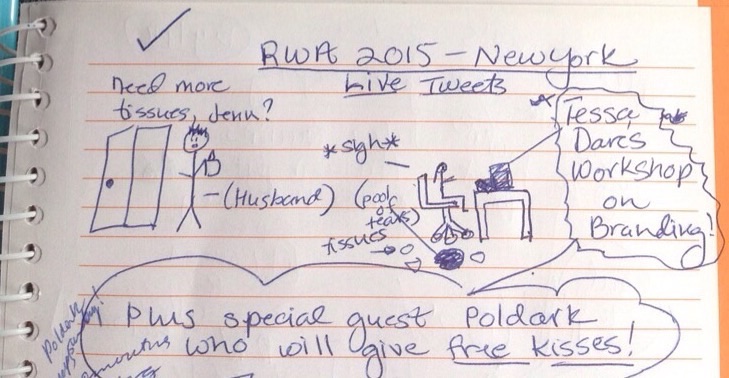 RWA 2015 - New York
Live Tweets
Need more
tissues, Jenn?
*sigh*
(Husband)
(pool
of
tears)
tissues
Tessa
Dare's
Workshop
on
Branding!
Plus special guest Poldark
who will give free kisses!
Poldark